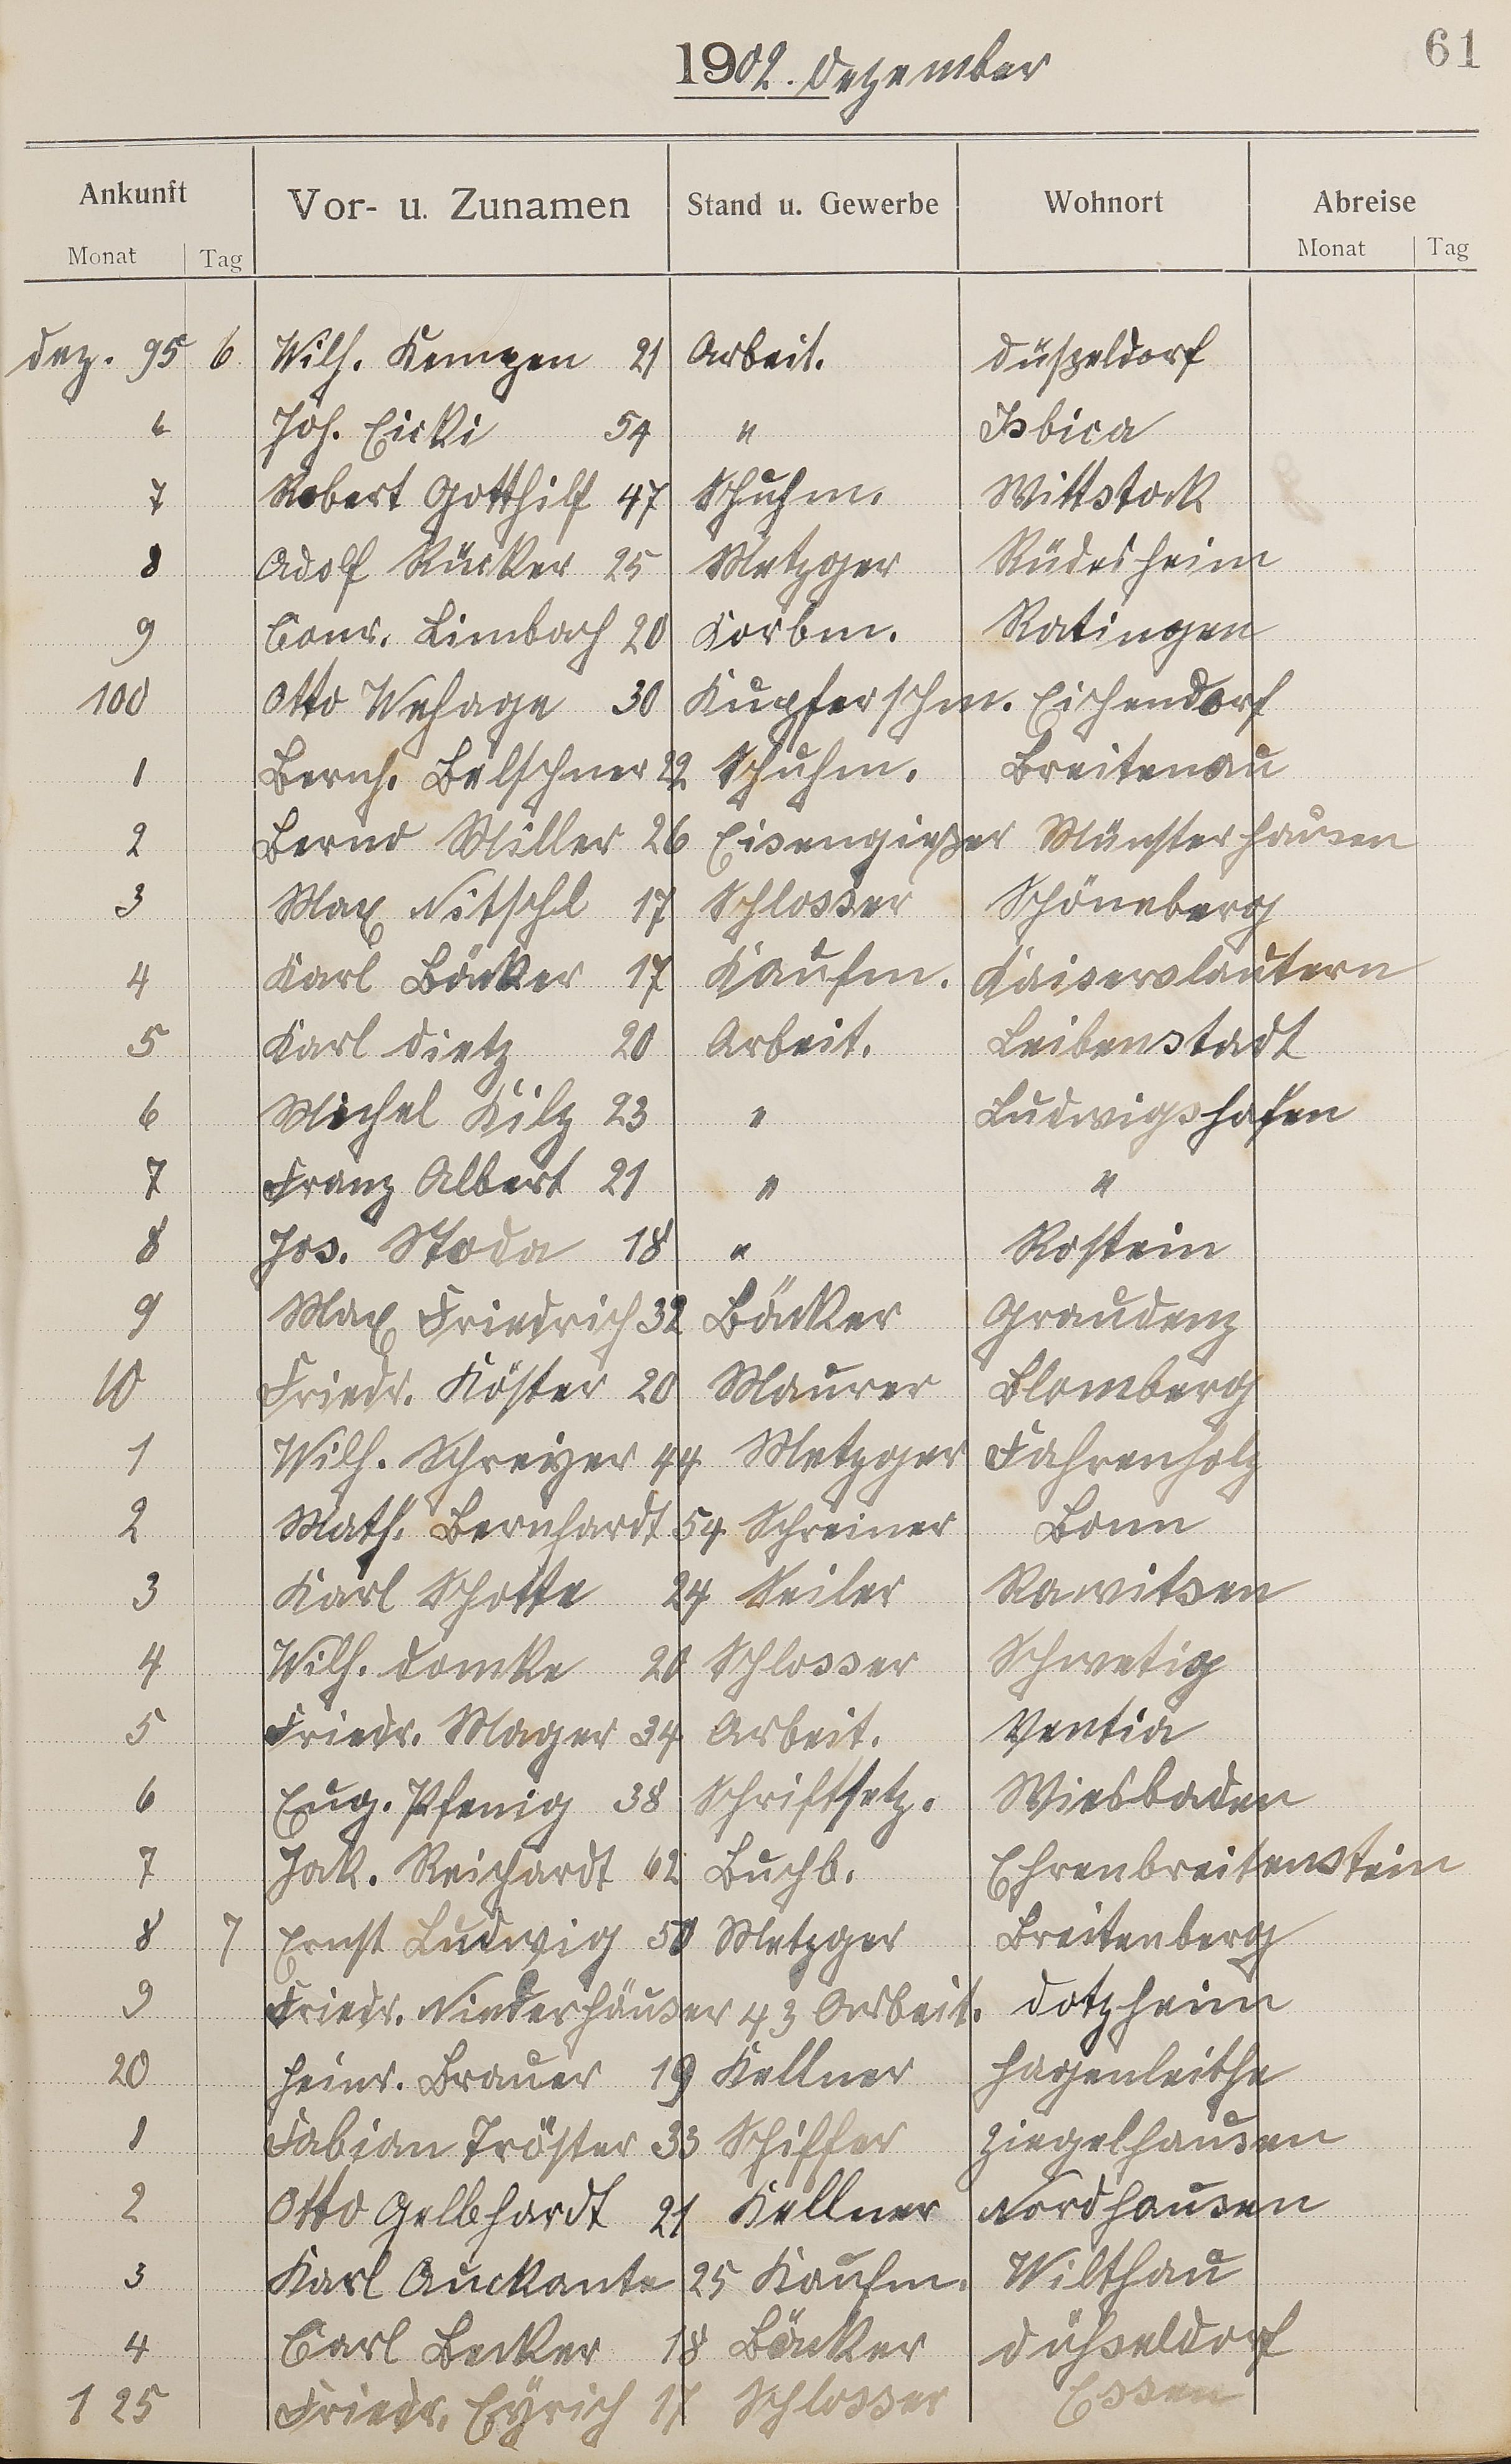 61
1902. Dezember
Ankunft Vor- u. Zunamen Stand u. Gewerbe Wohnort Abreise
Monat Tag Monat Tag
Dez. 95 6 Wilh. Kempen 21 Arbeit. Düsseldorf
6 Joh. Eicki 54 " Isbica
7 Robert Gotthilf 47 Schuhm. Wittstock
8 Adolf Rücker 25 Metzger Rüdesheim
9 Conr. Limbach 20 Korbm. Ratingen
100 Otto Wehage 30 Kupferschm. Eichendorf
1 Bernh. Belschner 22 Schuhm. Breitenau
2 Bernd Miller 26 Eisengießer Münsterhausen
3 Max Nitschl 17 Schlosser Schöneberg
4 Karl Bäcker 17 Kaufm. Kaiserslautern
5 Karl Dietz 20 Arbeit. Leibenstadt
6 Michel Kilz 23 " Ludwigshafen
7 Franz Albert 21 " "
8 Jos. Stoda 18 " Rostein
9 Max Friedrich 32 Bäcker Graudenz
10 Friedr. Köster 20 Maurer Blomberg
1 Wilh. Schreyer 44 Metzger Fahrenholz
2 Math. Bernhardt 54 Schreiner Bonn
3 Karl Schotte 24 Seiler Rawitsen
4 Wilh. Domke 20 Schlosser Schwetig
5 Friedr. Mager 34 Arbeit. Ventia
6 Eug. Pfenig 38 Schriftsetz. Wiesbaden
7 Jak. Reichardt 62 Buchb. Ehrenbreitenstein
8 7 Ernst Ludwig 50 Metzger Breitenberg
9 Friedr. Niederhäuser 43 Arbeit. Dotzheim
20 Heinr. Brauer 19 Kellner Hagenleithe
1 Fabian Tröster 33 Schiffer Ziegelhausen
2 Otto Gellhardt 21 Kellner Nordhausen
3 Karl Auckante 25 Kaufm. Wilthau
4 Carl Becker 18 Bäcker Düsseldorf
125 Friedr. Eyrich 17 Schlosser Essen